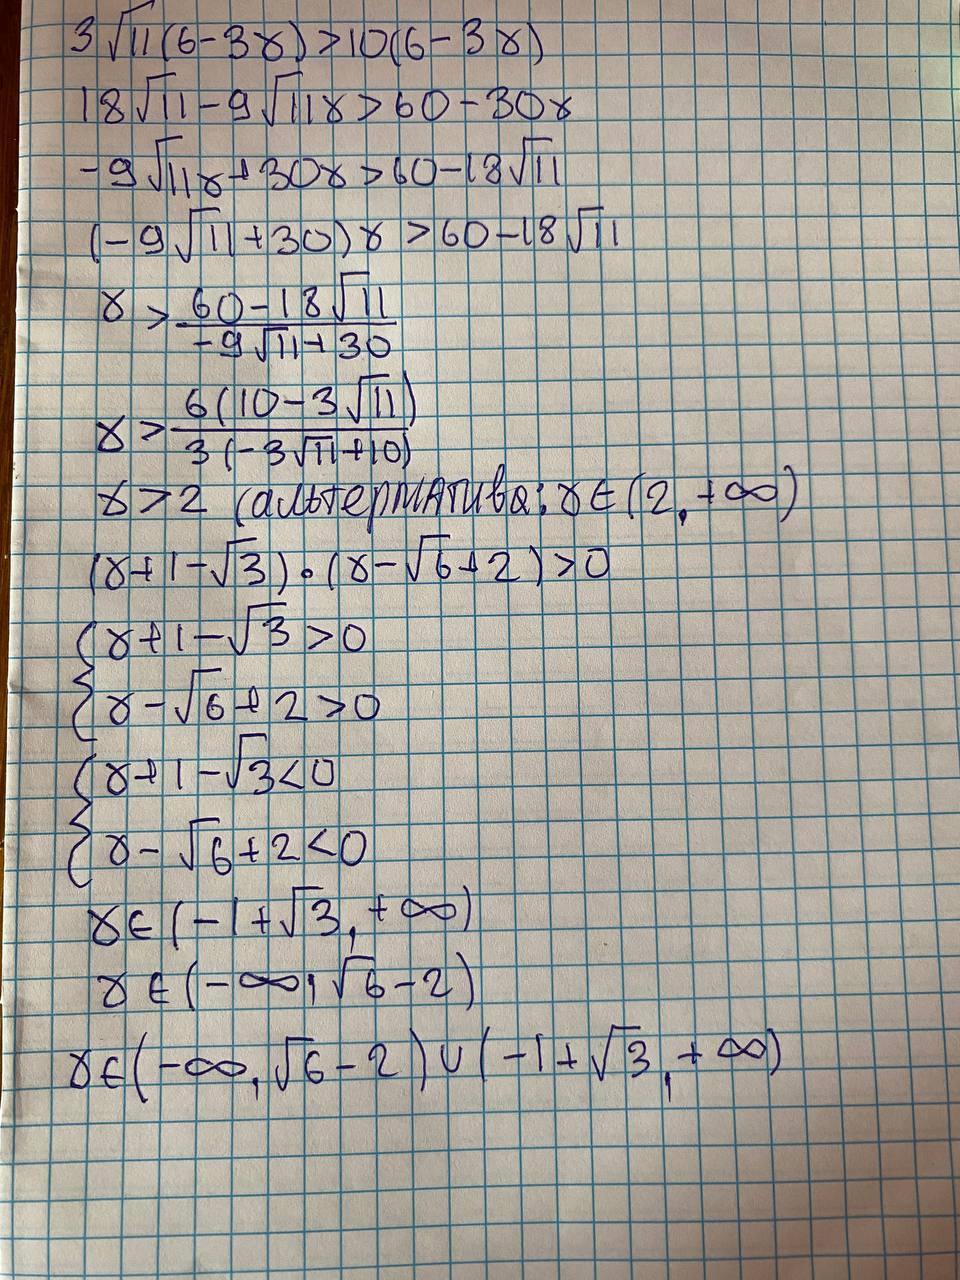 3√11(6-3x)>10(6-3x)
18√11-9√11x>60-30x
-9√11x+30x>60-18√11
(-9√11+30)x>60-18√11
x>60-18√11/-9√11+30
x>6(10-3√11)/3(-3√11+10)
x>2 (альтернатива: x∈(2,+∞)
(x+1-√3)·(x-√6+2)>0
{x+1-√3>0
x-√6+2>0
{x+1-√3<0
x-√6+2<0
x∈(-1+√3,+∞)
x∈(-∞,√6-2)
x∈(-∞,√6-2)∪(-1+√3,+∞)